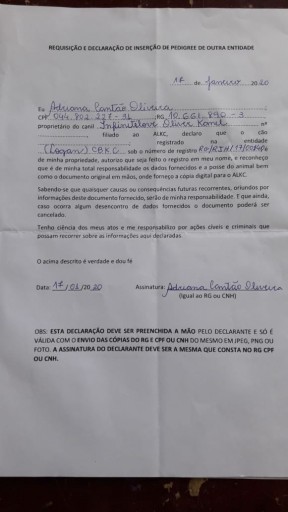 REQUISIÇÃO E DECLARAÇÃO DE INSERÇÃO DE PEDIGREE DE OUTRA ENTIDADE
17 de janeiro de 2020
Eu Adriana Cantão Oliveira
CPF 044.802.227-31 RG 10.661.890-3
proprietário do canil Infinitelove Oliver Kanel nº
filiado ao ALKC, declaro que o cão
registrado na entidade
(Logan) CBKC sob o número de registro
de minha propriedade, autorizo que seja feito o registro em meu nome, e reconheço
que é de minha total responsabilidade os dados fornecidos e a posse do animal bem
como o documento original em mãos, onde forneço a copia digital para o ALKC.
Sabendo-se que quaisquer causas ou consequências futuras recorrentes, oriundos por
informações deste documento fornecido, serão da minha responsabilidade. E que ainda,
caso ocorra algum desencontro de dados fornecidos o documento poderá ser
cancelado.
Tenho ciência dos meus atos e me responsabilizo por ações cíveis e criminais que
possam recorrer sobre as informações aqui declaradas.
O acima descrito é verdade e dou fé
Data: 17/01/2020 Assinatura: Adriana Cantão Oliveira
(Igual ao RG ou CNH)
OBS: ESTA DECLARAÇÃO DEVE SER PREENCHIDA A MÃO PELO DECLARANTE E SÓ É
VÁLIDA COM O ENVIO DAS CÓPIAS DO RG E CPF OU CNH DO MESMO EM JPEG, PNG OU
FOTO. A ASSINATURA DO DECLARANTE DEVE SER A MESMA QUE CONSTA NO RG CPF
OU CNH.